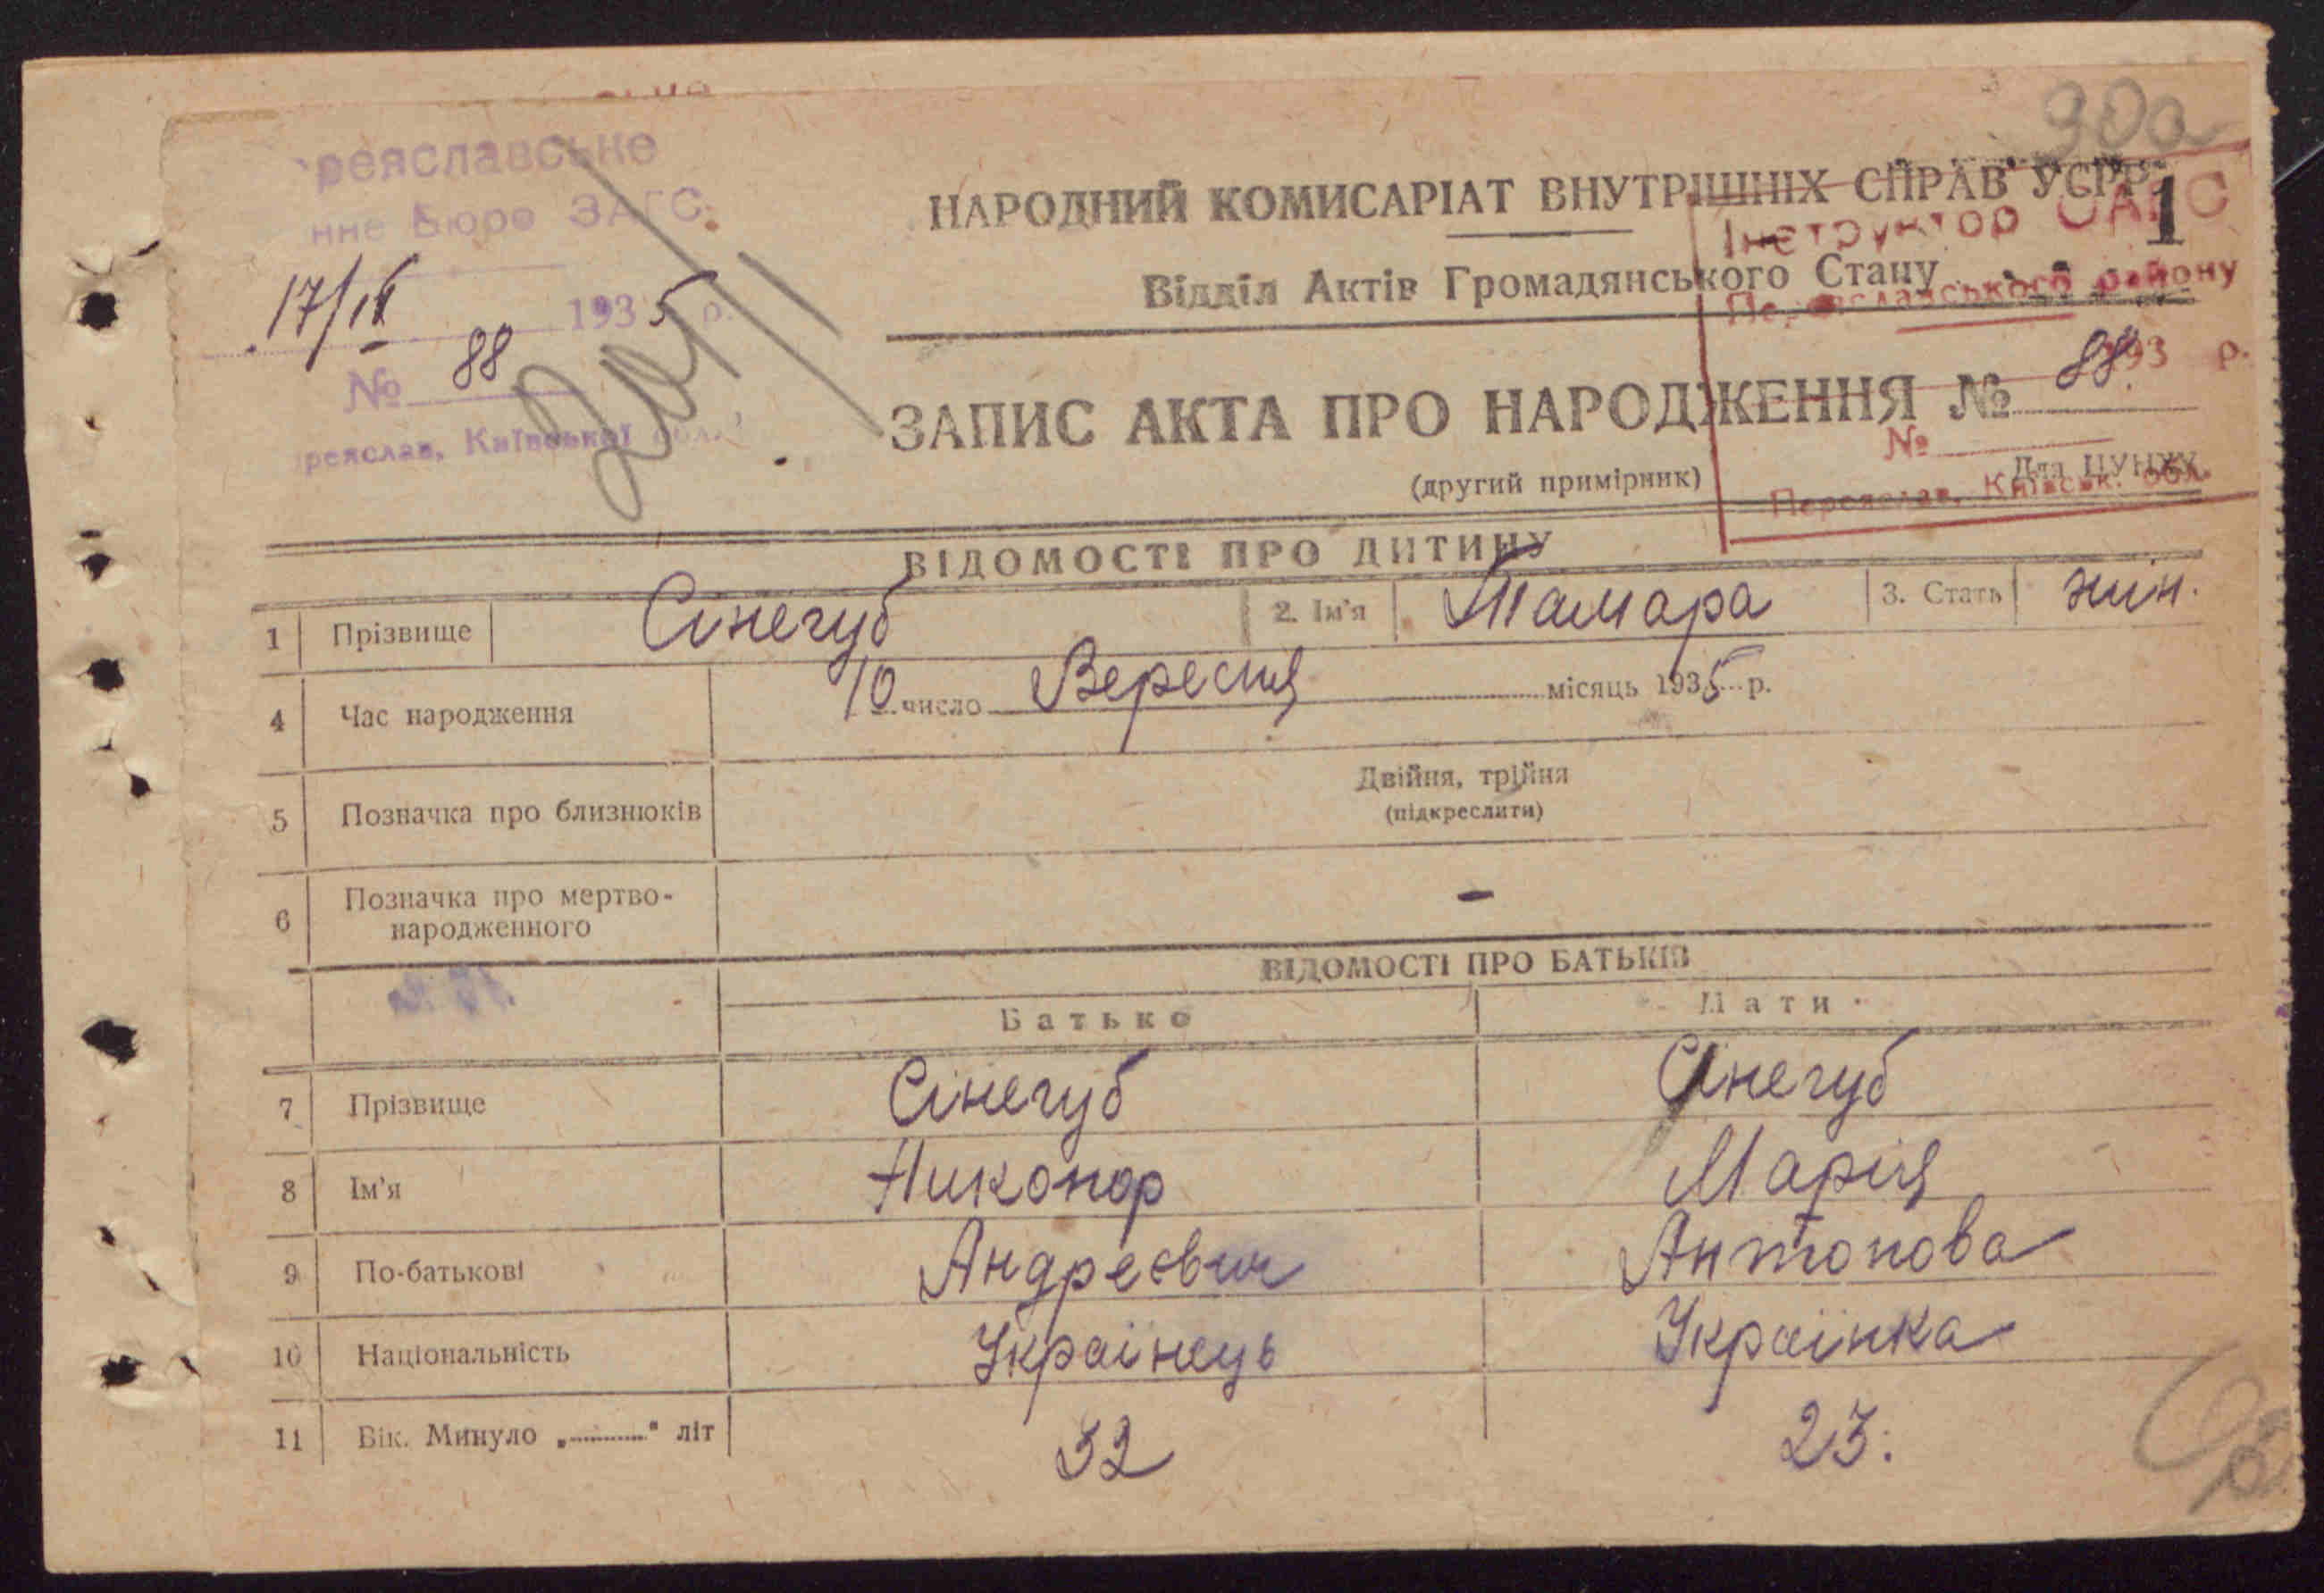 900
реяславське
нне Бюро ЗАГС
17/ІХ 1935 р.
№ 88
реяслав, Київської обл.
НАРОДНИЙ КОМИСАРІАТ ВНУТРІШНІХ СПРАВ УСРР
1
Інструктор
Відділ Актів Громадянського Стану
Переяславського району
193 р.
ЗАПИС АКТА ПРО НАРОДЖЕННЯ № 88
№
(другий примірник)
Для ЦУНХУ
Переяслав, Київськ. обл.
ВІДОМОСТІ ПРО ДИТИНУ
1 Прізвище Сінегуб 2. Ім'я Тамара 3. Стать жін.
4 Час народження 10 число Вересня місяць 1935 р.
5 Позначка про близнюків Двійня, трійня
(підкреслити)
6 Позначка про мертво-
народженного -
ВІДОМОСТІ ПРО БАТЬКІВ
Батько Мати
7 Прізвище Сінегуб Сінегуб
8 Ім'я Никонор Марія
9 По-батькові Андреєвич Антонова
10 Національність Українець Українка
11 Вік. Минуло „..........“ літ 32 23.